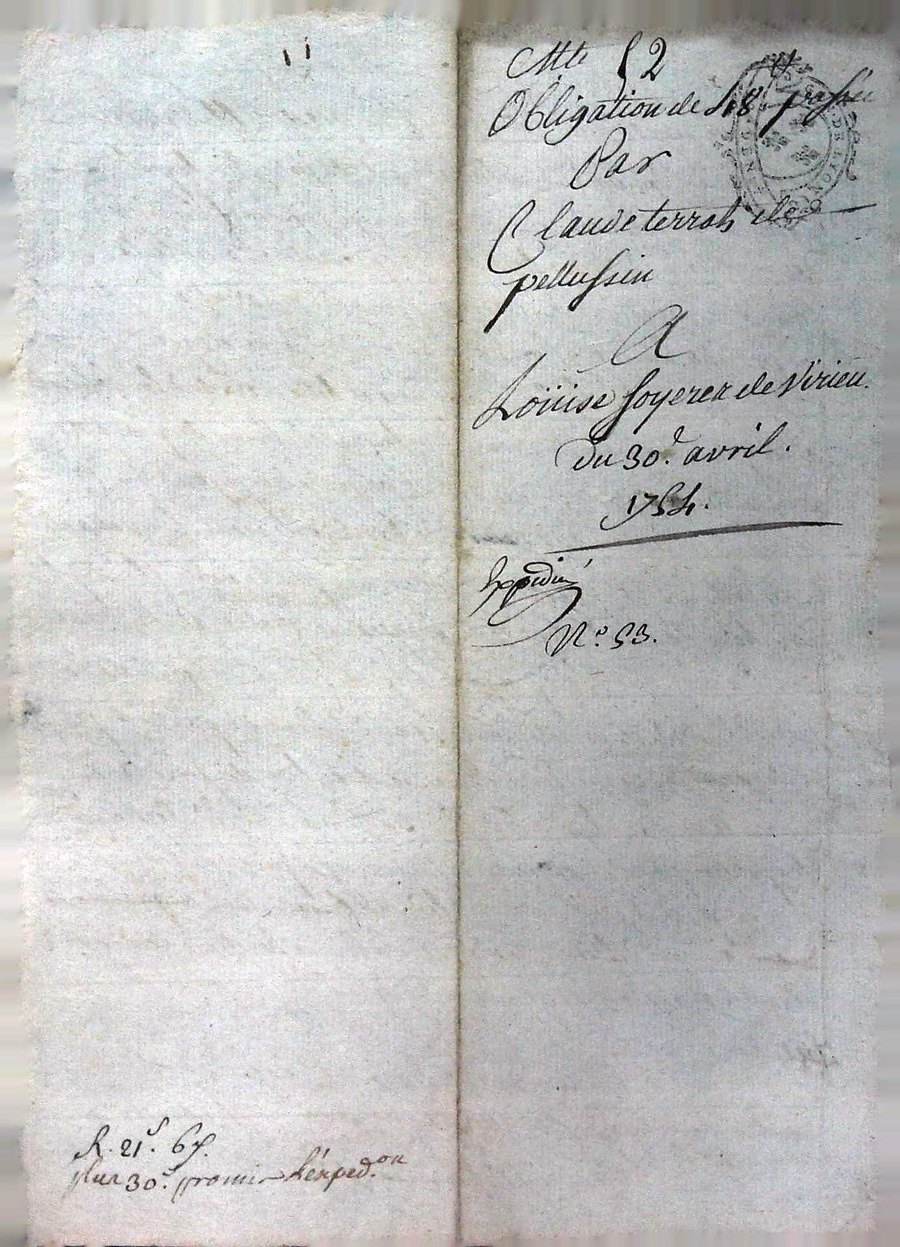 11
52
Obligation de
Par
Claude terrat de
pellussin
A
Loüise foyerer de Virieu.
du 30.e avril.
1754.
Expédié
N.o 53.
R. 21.s 6d.
plus 30.s l'exped.on